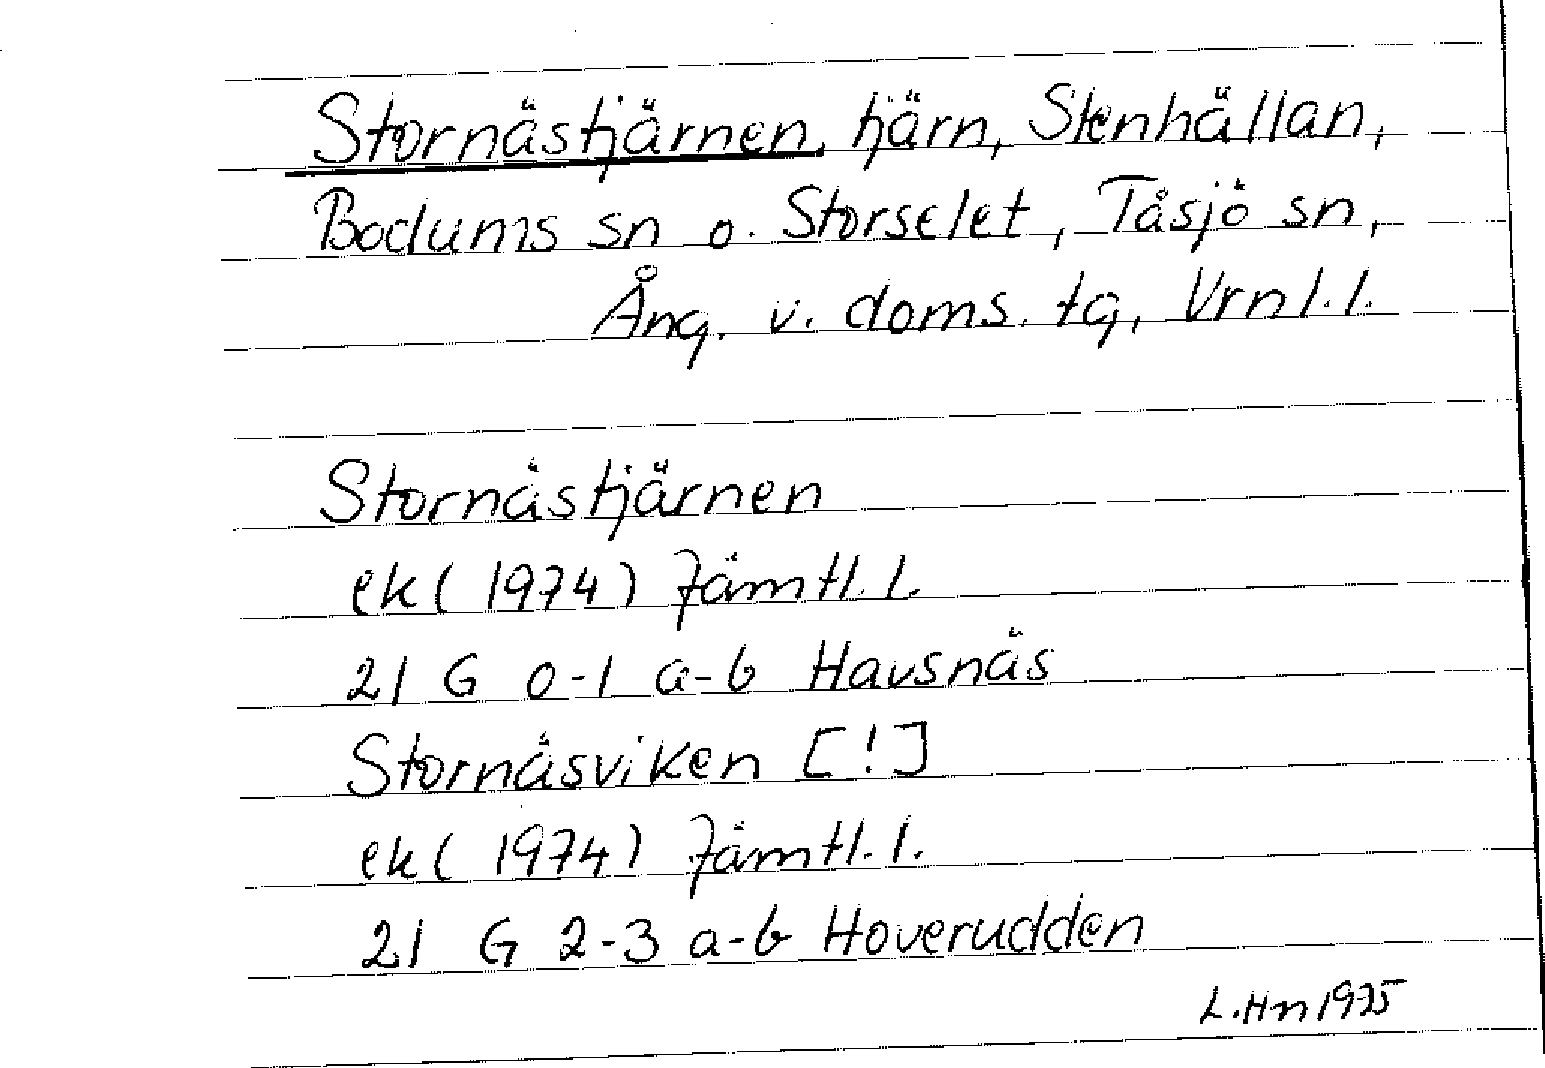 Stornästjärnen, tjärn, Stenhällan,
Bodums sn o. Storselet, Tåsjö sn,
Ång. v. doms. tg, Vrnl. l.
Stornästjärnen
ek (1974) Jämtl. l.
21 G 0-1 a-b Havsnäs
Stornäsviken [!]
ek (1974) Jämtl. l.
21 G 2-3 a-b Hoverudden
L. Hn 1975